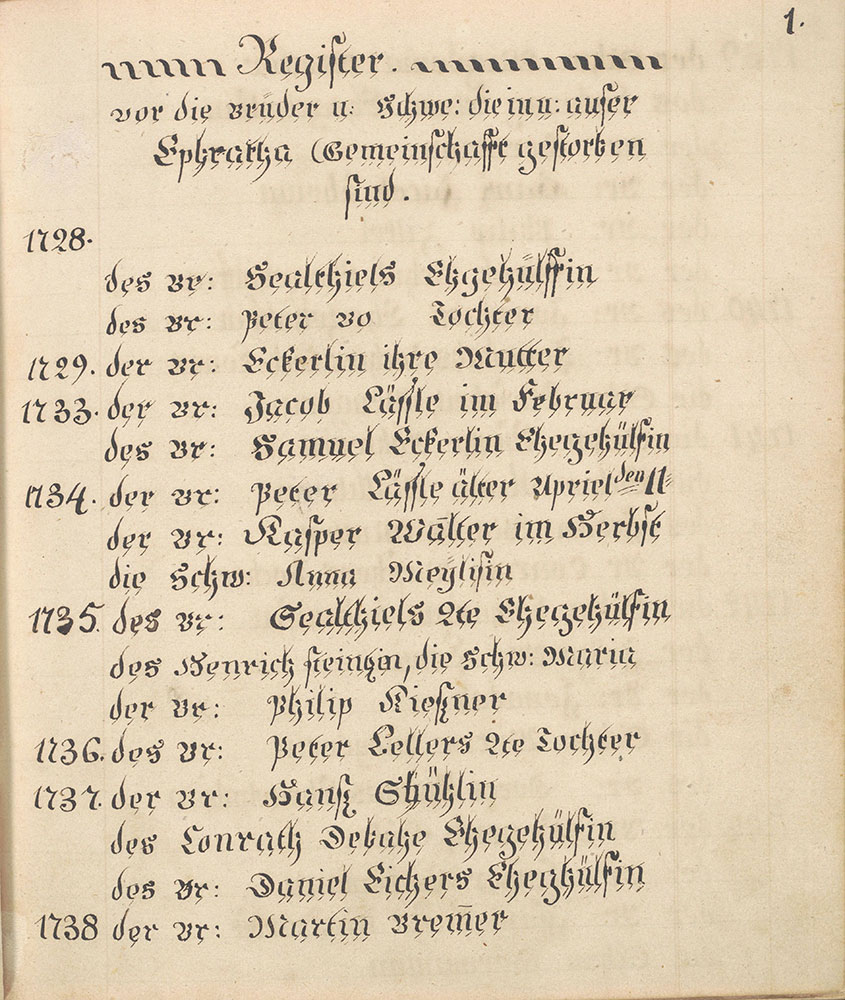 1.
Register.
vor die Brüder u: Schwe: die in u: auser
Ephratha Gemeinschafft gestorben
sind.
1728.
des Br: Sealthiels Ehgehülffin
des Br: Peter vo Tochter
1729. der Br: Eckerlin ihre Mutter
1733. der Br: Jacob Lässle im Februar
des Br: Samuel Eckerlin Ehegehülfin
1734. der Br: Peter Lässle älter Apriel den 11
der Br: Kasper Walter im Herbst
die Schw: Anna Meylisin
1735. des Br: Sealthiels 2te Ehegehülfin
des Henrich, die Schw: Maria
der Br: Philip Kießner
1736. des Br: Peter Lellers 2te Tochter
1737. der Br: Hanß
des Conrath Ehegehülfin
des Br: Daniel Eichers Eheghülfin
1738 der Br: Martin Brem̄er